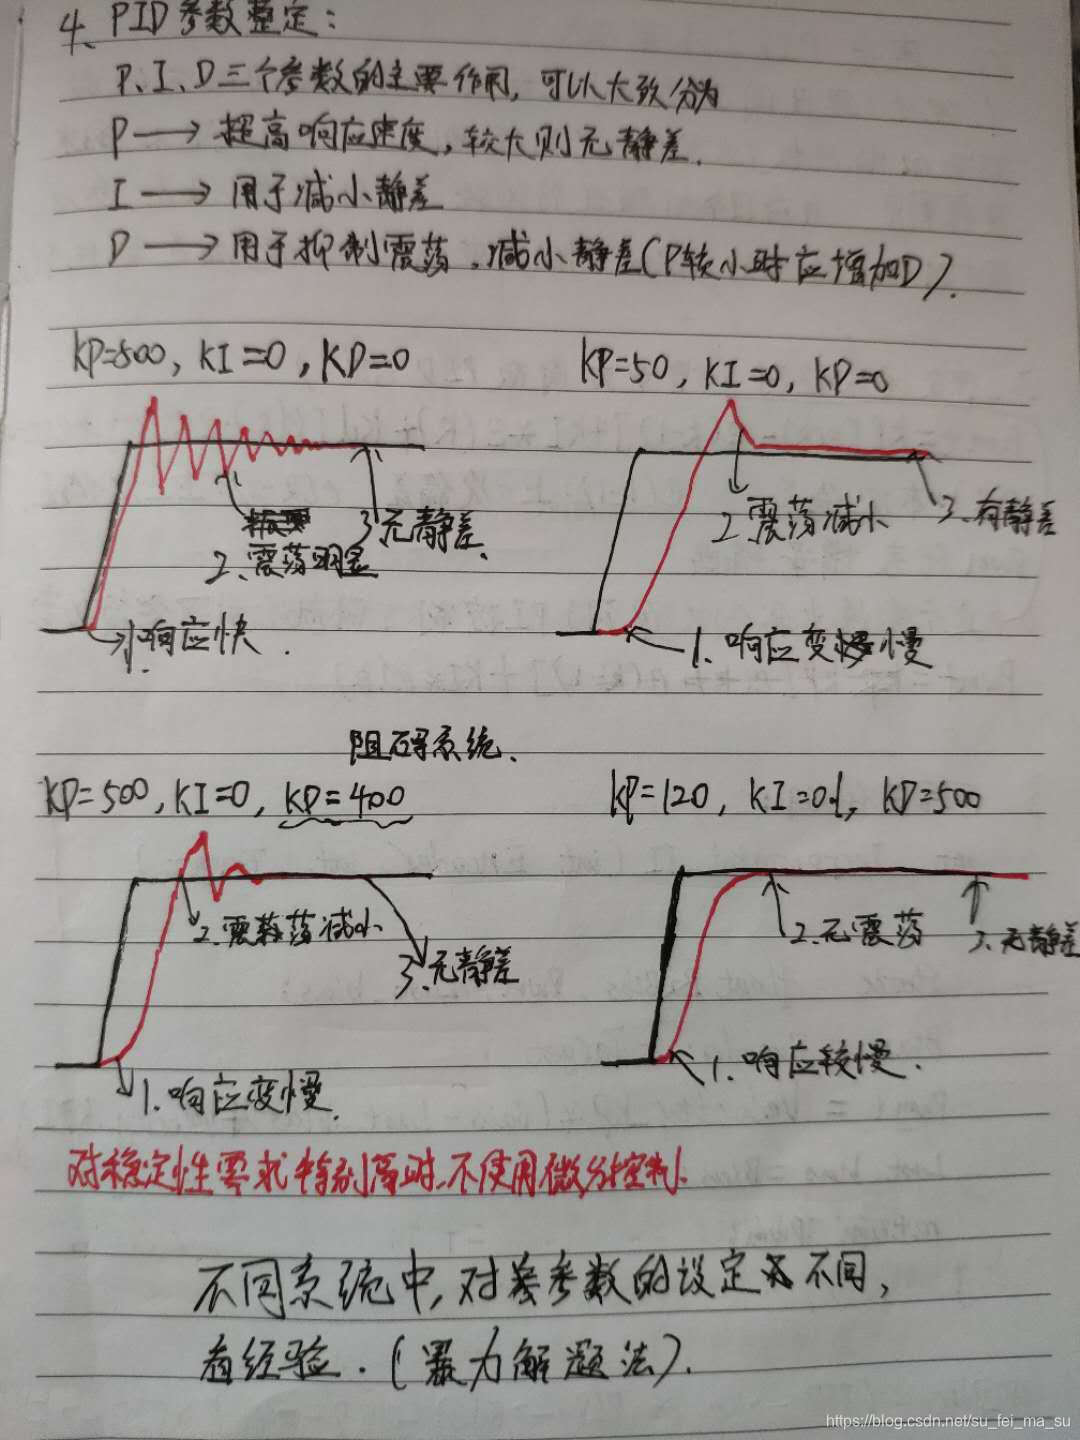 4、PID参数整定：
P、I、D三个参数的主要作用，可以大致分为
P → 提高响应速度，较大则无静差.
I → 用于减小静差
D → 用于抑制震荡.减小静差(P较小时应增加D).
KP=500, KI=0, KD=0
KP=50, KI=0, KD=0
2、震荡明显
3、无静差.
1、响应快.
2、震荡减小
3、有静差
1、响应变慢
阻碍系统.
KP=500, KI=0, KD=400
KP=120, KI=0.1, KD=500
2、震荡减小
3、无静差
1、响应变慢.
2、无震荡
3、无静差
1、响应较慢.
对稳定性要求特别高时，不使用微分控制.
不同系统中，对参数的设定不同，
看经验.(暴力解题法).
https://blog.csdn.net/su_fei_ma_su